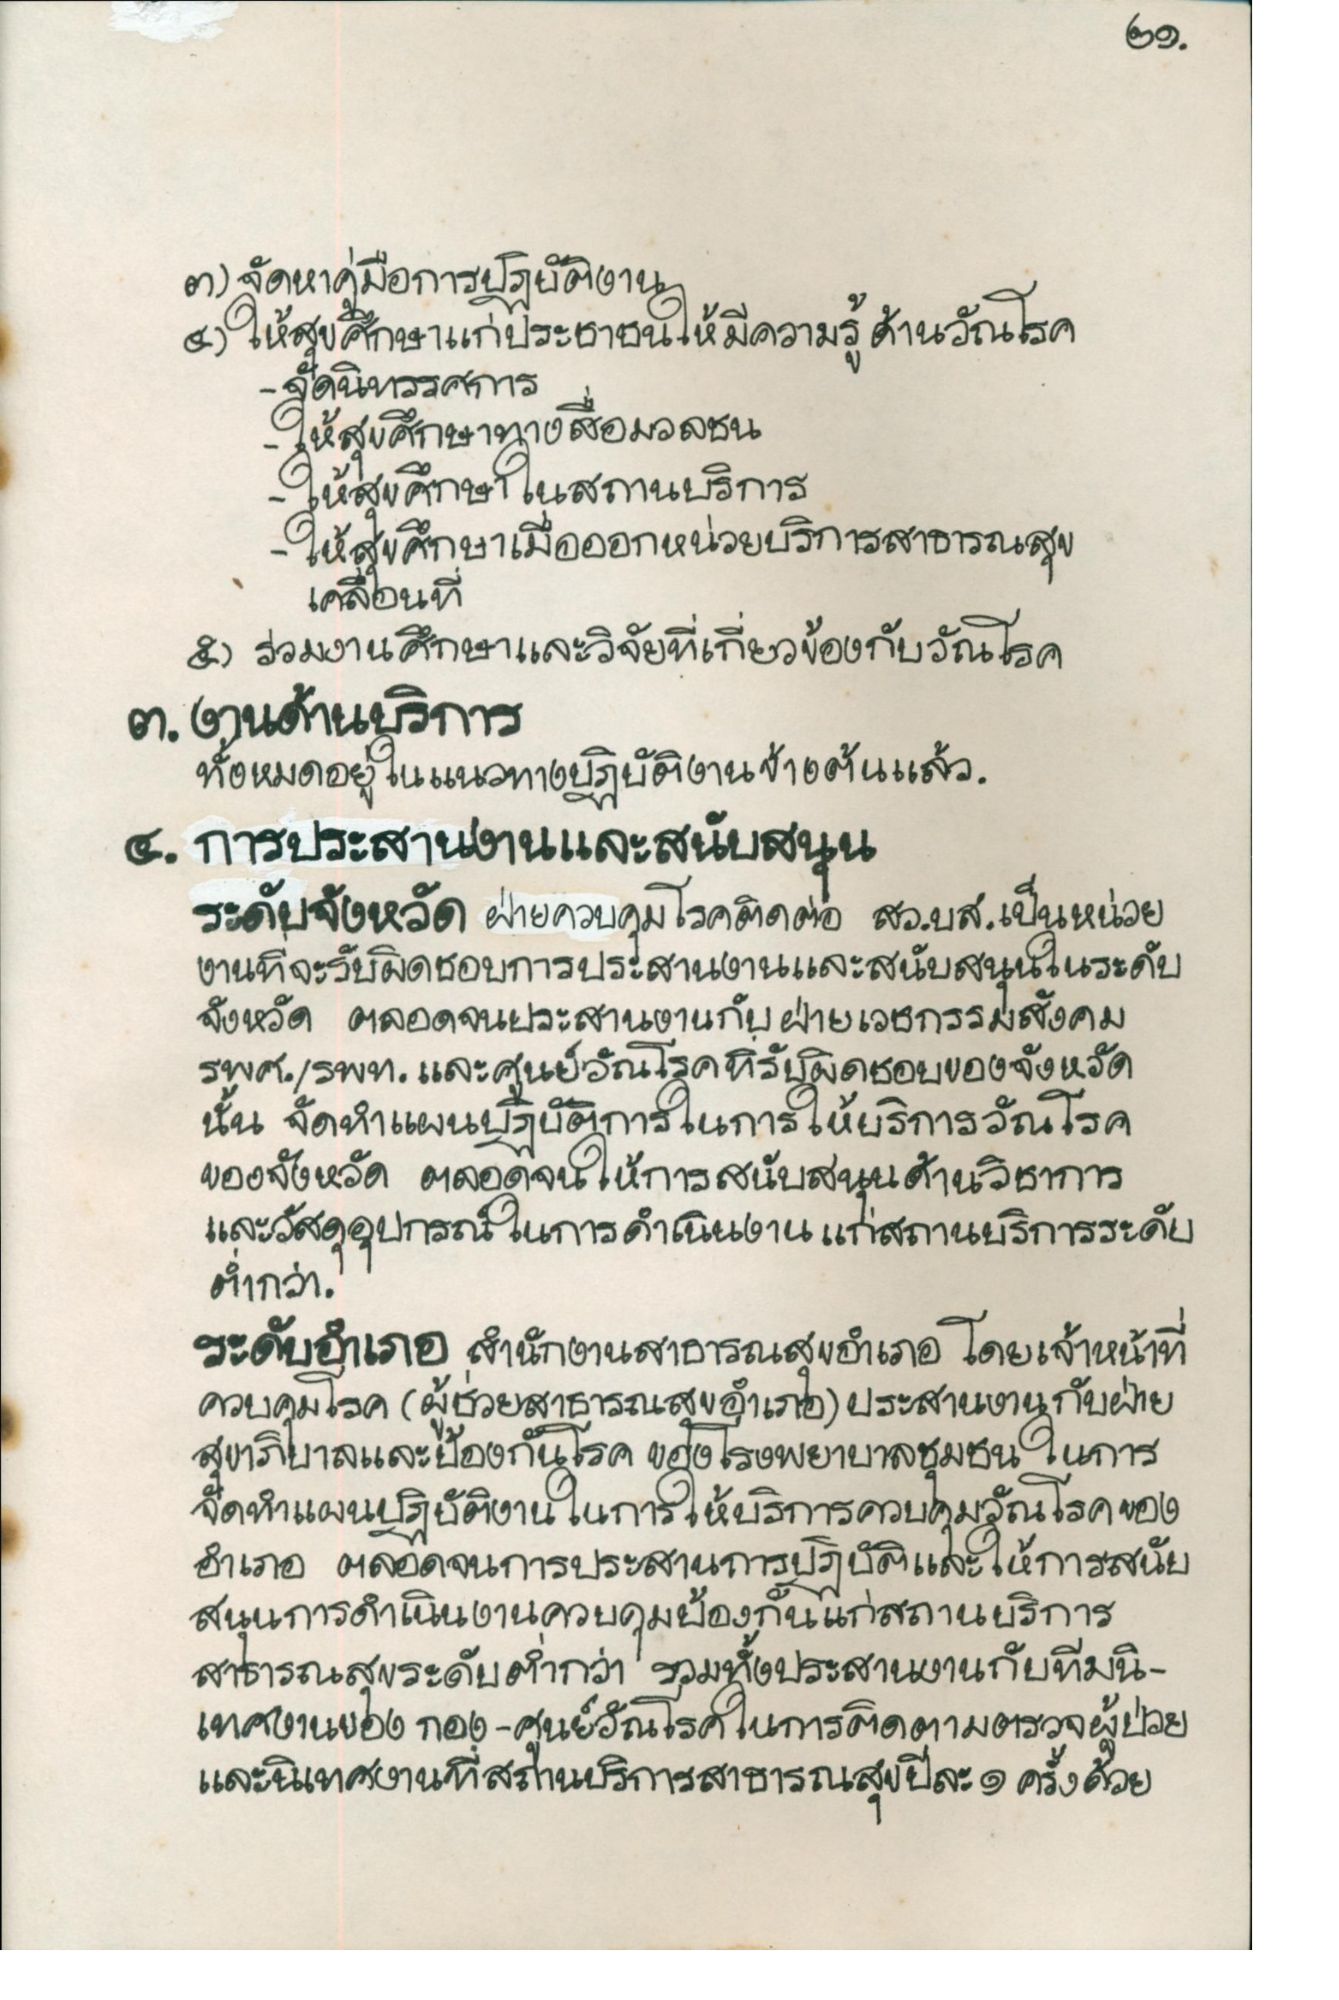 ๒๑.
๓) จัดหาคู่มือการปฏิบัติงาน
๔) ให้สุขศึกษาแก่ประชาชนให้มีความรู้ด้านวัณโรค
- จัดนิทรรศการ
- ให้สุขศึกษาทางสื่อมวลชน
- ให้สุขศึกษาในสถานบริการ
- ให้สุขศึกษาเมื่อออกหน่วยบริการสาธารณสุข
เคลื่อนที่
๕) ร่วมงานศึกษาและวิจัยที่เกี่ยวข้องกับวัณโรค
๓. งานด้านบริการ
ทั้งหมดอยู่ในแนวทางปฏิบัติงานข้างต้นแล้ว.
๔. การประสานงานและสนับสนุน
ระดับจังหวัด ฝ่ายควบคุมโรคติดต่อ สว.บส.เป็นหน่วย
งานที่จะรับผิดชอบการประสานงานและสนับสนุนในระดับ
จังหวัด ตลอดจนประสานงานกับ ฝ่ายเวชกรรมสังคม
รพศ./รพท. และศูนย์วัณโรคที่รับผิดชอบของจังหวัด
นั้น จัดทำแผนปฏิบัติการในการให้บริการวัณโรค
ของจังหวัด ตลอดจนให้การสนับสนุนด้านวิชาการ
และวัสดุอุปกรณ์ในการดำเนินงาน แก่สถานบริการระดับ
ต่ำกว่า.
ระดับอำเภอ สำนักงานสาธารณสุขอำเภอ โดยเจ้าหน้าที่
ควบคุมโรค (ผู้ช่วยสาธารณสุขอำเภอ) ประสานงานกับฝ่าย
สุขาภิบาลและป้องกันโรค ของโรงพยาบาลชุมชน ในการ
จัดทำแผนปฏิบัติงานในการให้บริการควบคุมวัณโรคของ
อำเภอ ตลอดจนการประสานการปฏิบัติและให้การสนับ
สนุนการดำเนินงานควบคุมป้องกันแก่สถานบริการ
สาธารณสุขระดับต่ำกว่า รวมทั้งประสานงานกับทีมนิ-
เทศงานของ กอง - ศูนย์วัณโรคในการติดตามตรวจผู้ป่วย
และนิเทศงานที่สถานบริการสาธารณสุขปีละ ๑ ครั้งด้วย